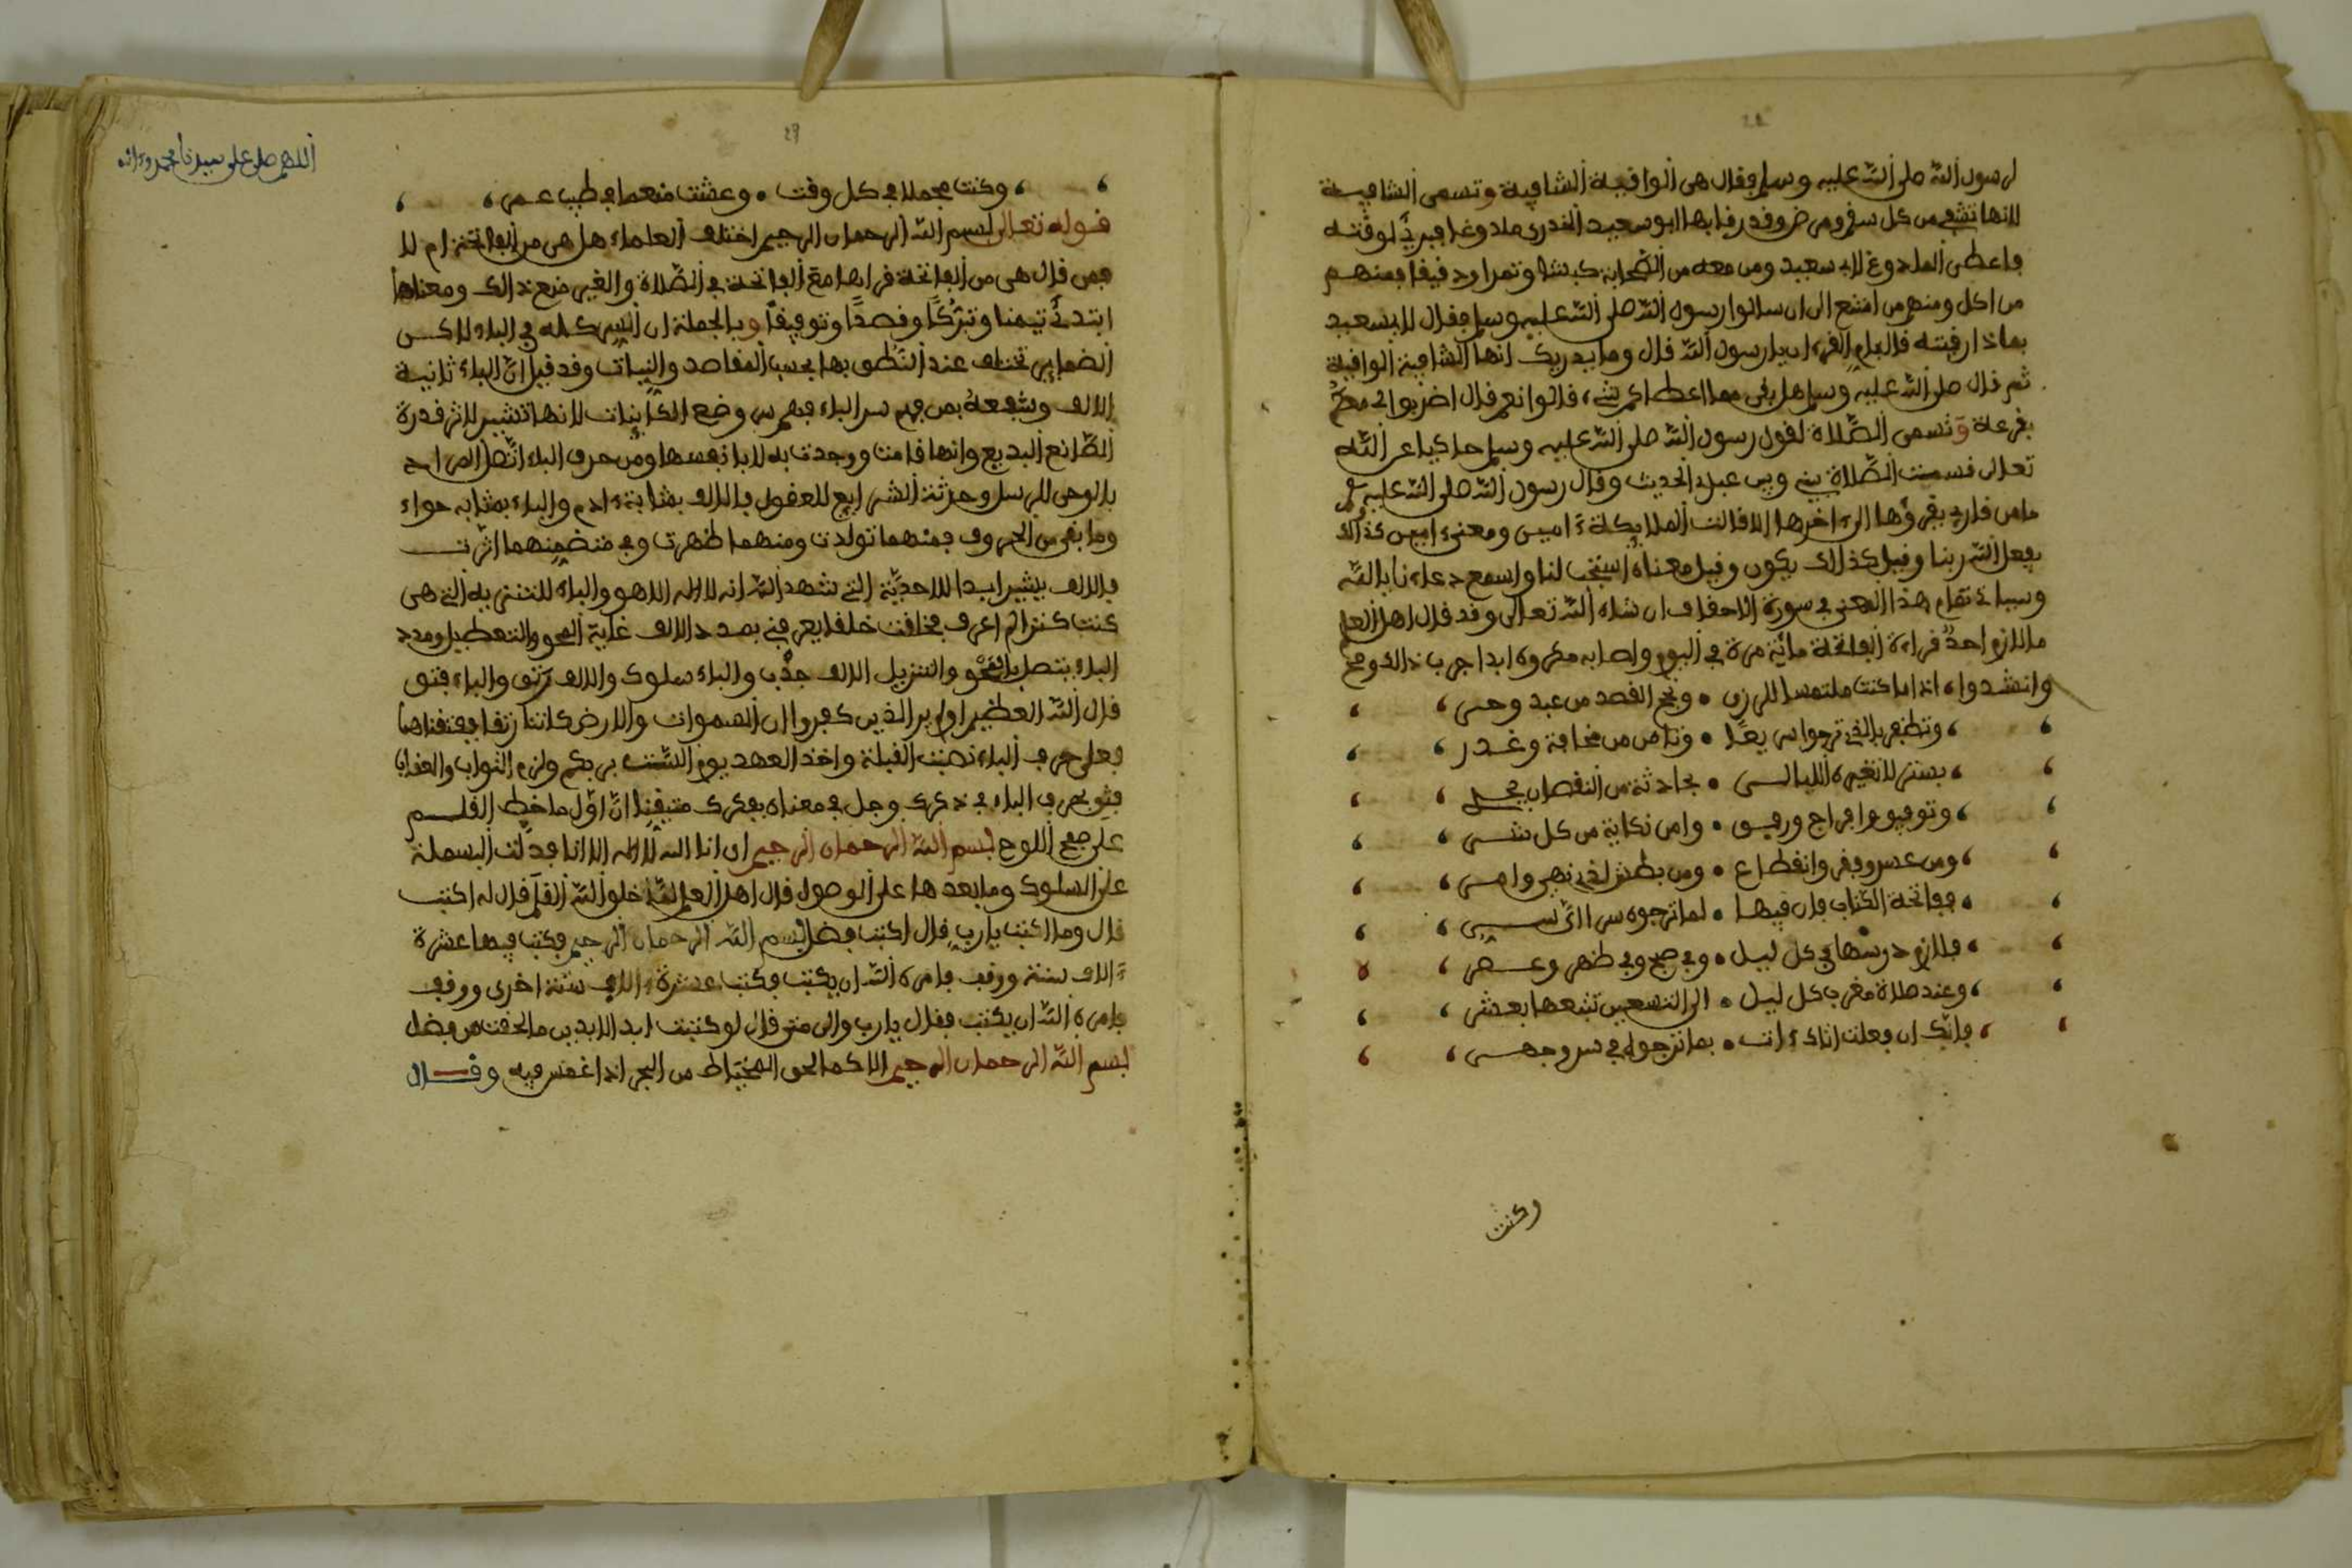 لرسول الله صلى الله عليه وسلم فقال هى الواقية الشافية وتسمى الشافيـة
لانها تشفي من كل سقم ومرض وقد رقا بها ابو سعيد الخدرى ملدوغا فبرئ لوقتـه
فاعطى الملدوغ لابي سعيد ومن معه من الصحابة كبشا وتمرا ودقيقا فمنهـم
من اكل ومنهم من امتنع الى ان سالوا رسول الله صلى الله عليه وسلم فقال لابي سعيد
بماذا رقيته قال بام القرءان يا رسول الله قال وما يدريك انها الشافية الواقية
ثم قال صلى الله عليه وسلم هل بقى مما اعطاكم شيء قالوا نعم قال اضربوا لي معكم
بقرعة وتسمى الصلاة لقول رسول الله صلى الله عليه وسلم حاكيا عن الله
تعالى قسمت الصلاة بيني وبين عبدي الحديث وقال رسول الله صلى الله عليه
ما من قارئ يقرؤها الى ءاخرها الا قالت الملايكة ءامين ومعنى ءامين كذالك
يفعل الله ربنا وقيل كذالك يكون وقيل معناه استجب لنا واسمع دعاءنا يالله
وسياتي تمام هذا المعنى في سورة الاحقاف ان شاء الله تعالى وقد قال اهل العلم
ما لازم احد قراءة الفاتحة مائة مرة في اليوم واصابه مكروه ابدا جرب ذالك وصح
وانشدوا، اذا ما كنت ملتمسا لرزق • ونجح القصد من عبد وحـر،
، وتظفر بالذي ترجوا سريعا • وتامن من مخافة وغـدر،
، بستر لا تغيره الليالـى • بحادثة من النقصان يجـر
، وتوفيق وافراج ورفيق • وامن نكاية من كل شـر،
، ومن عسر وفقر وانقطاع • ومن بطش لذي نهى وامـر،
، ففاتحة الكتاب فان فيهـا • لما ترجوه سر ااي سـر،
، فلازم درسها في كل ليـل • وفي صبح وفي ظهر وعـصر،
، وعند صلاة مغرب كل ليـل • الى التسعين تتبعها بعشر،
، فانك ان فعلت اتاك ءات • بما ترجوه في سر وجهـر،
وكنت
اللهم صل على سيدنا محمد وءاله
، وكنت مجملا في كل وقت • وعشت منعما في طيب عـمر،
قـوله تعالى بسم الله الرحمان الرحيم اختلف العلماء هل هى من الفاتحة ام لا
فمن قال هى من الفاتحة قراها مع الفاتحة في الصلاة والغير منع ذالك ومعناها
ابتدئ تيمنا وتبركا وقصدا وتوفيقا وبالجملة ان السر كله في الباء لاكـن
الضماير تختلف عند النطق بها بحسب المقاصد والنيات وقد قيل ان الباء ثانية
الالف وشفعة بمن فهم سر الباء فهم سر وضع الكاينات لانها تشير لاثر قدرة
الصانع البديع وانها قامت ووجدت به لا بانفسها ومن حرف الباء اتصل المراد
بالوحي للرسل وحدثة الشرايع للعقول فالالف بمثابة ءادم والباء بمثابه حواء
وما بقى من الحروف فمنهما تولدت ومنهما ظهرت وفي متضمنهما اثرت
فالالف يشير ابدا للاحدية التي شهد الله انه لا اله الا هو والباء للتثنيه التي هى
كنت كنزا لم اعرف فخلقت خلقا يعرفني بصدد الالف غاية المحو والتعطيل ومدد
الباء يتصل بالمحو والتنزيل الالف جذب والباء سلوك والالف رتق والباء فتق
قال الله العظيم اولم ير الذين كفروا ان السموات والارض كانتا رتقا ففتقناهما
فعلى حرف الباء نصبت القبلة واخذ العهد يوم الست بربكم ولزم الثواب والعقاب
فثق بحرف الباء في ذكرك وجل في معناه بفكرك متيقنا ان اول ما خط القلـم
على صفح اللوح بسم الله الرحمان الرحيم ان انا الله لا اله الا انا فدلت البسملة
على السلوك وما بعدها على الوصول قال اهل العلم لما خلق الله القلم قال له اكتب
قال وما اكتب يارب قال اكتب فضل بسم الله الرحمان الرحيم فكتب فيها عشرة
ءالاف سنة ووقف فامره الله ان يكتب فكتب عشرة ءالاف سنة اخرى ووقف
فامره الله ان يكتب فقال يارب والى متى قال لو كتبت ابد الابدين ما لحقت من فضل
بسم الله الرحمان الرحيم الا كما لحق المخياط من البحر اذا غمس فيه وقـال